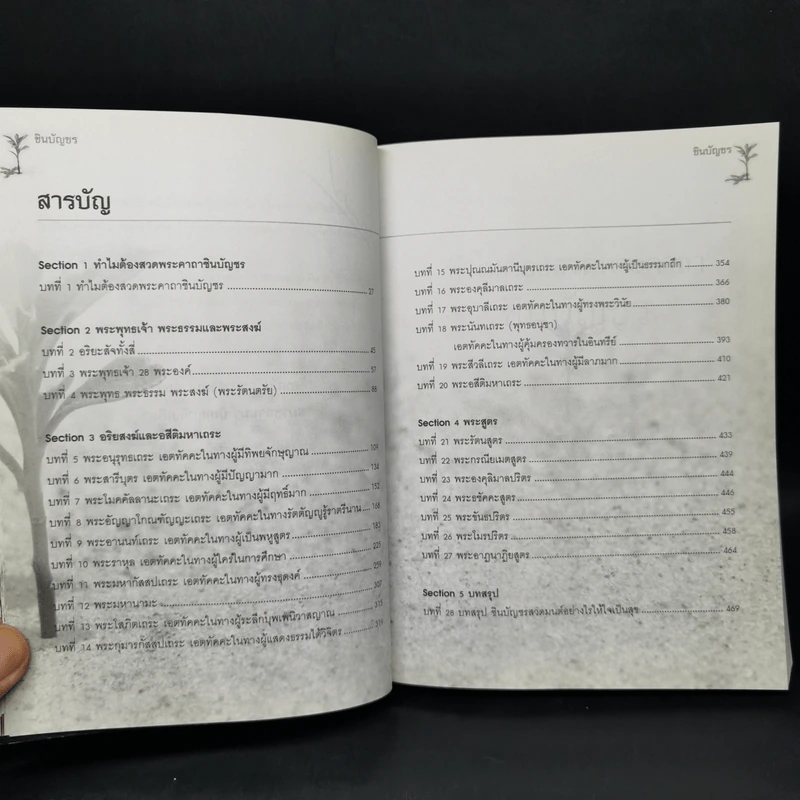 ชินบัญชร
สารบัญ
Section 1 ทำไมต้องสวดพระคาถาชินบัญชร
บทที่ 1 ทำไมต้องสวดพระคาถาชินบัญชร 27
Section 2 พระพุทธเจ้า พระธรรมและพระสงฆ์
บทที่ 2 อริยะสัจทั้งสี่ 45
บทที่ 3 พระพุทธเจ้า 28 พระองค์ 57
บทที่ 4 พระพุทธ พระธรรม พระสงฆ์ (พระรัตนตรัย) 88
Section 3 อริยสงฆ์และอสีติมหาเถระ
บทที่ 5 พระอนุรุทธเถระ เอตทัคคะในทางผู้มีทิพยจักษุญาณ 109
บทที่ 6 พระสารีบุตร เอตทัคคะในทางผู้มีปัญญามาก 134
บทที่ 7 พระโมคคัลลานะเถระ เอตทัคคะในทางผู้มีฤทธิ์มาก 152
บทที่ 8 พระอัญญาโกณฑัญญะเถระ เอตทัคคะในทางรัตตัญญูรู้ราตรีนาน 168
บทที่ 9 พระอานนท์เถระ เอตทัคคะในทางผู้เป็นพหูสูตร 183
บทที่ 10 พระราหุล เอตทัคคะในทางผู้ใคร่ในการศึกษา 225
บทที่ 11 พระมหากัสสปเถระ เอตทัคคะในทางผู้ทรงธุดงค์ 259
บทที่ 12 พระมหานามะ 307
บทที่ 13 พระโสภิตเถระ เอตทัคคะในทางผู้ระลึกบุพเพนิวาสญาณ 315
บทที่ 14 พระกุมารกัสสปเถระ เอตทัคคะในทางผู้แสดงธรรมได้วิจิตร
ชินบัญชร
บทที่ 15 พระปุณณมันตานีบุตรเถระ เอตทัคคะในทางผู้เป็นธรรมกถึก 354
บทที่ 16 พระองคุลีมาลเถระ 366
บทที่ 17 พระอุบาลีเถระ เอตทัคคะในทางผู้ทรงพระวินัย 380
บทที่ 18 พระนันทเถระ (พุทธอนุชา)
เอตทัคคะในทางผู้คุ้มครองทวารในอินทรีย์ 393
บทที่ 19 พระสีวลีเถระ เอตทัคคะในทางผู้มีลาภมาก 410
บทที่ 20 พระอสีติมหาเถระ 421
Section 4 พระสูตร
บทที่ 21 พระรัตนสูตร 433
บทที่ 22 พระกรณียเมตสูตร 439
บทที่ 23 พระองคุลิมาลปริตร 444
บทที่ 24 พระธชัคคะสูตร 446
บทที่ 25 พระขันธปริตร 455
บทที่ 26 พระโมรปริตร 458
บทที่ 27 พระอาฏานาฏิยสูตร 464
Section 5 บทสรุป
บทที่ 28 บทสรุป ชินบัญชรสวดมนต์อย่างไรให้ใจเป็นสุข 469